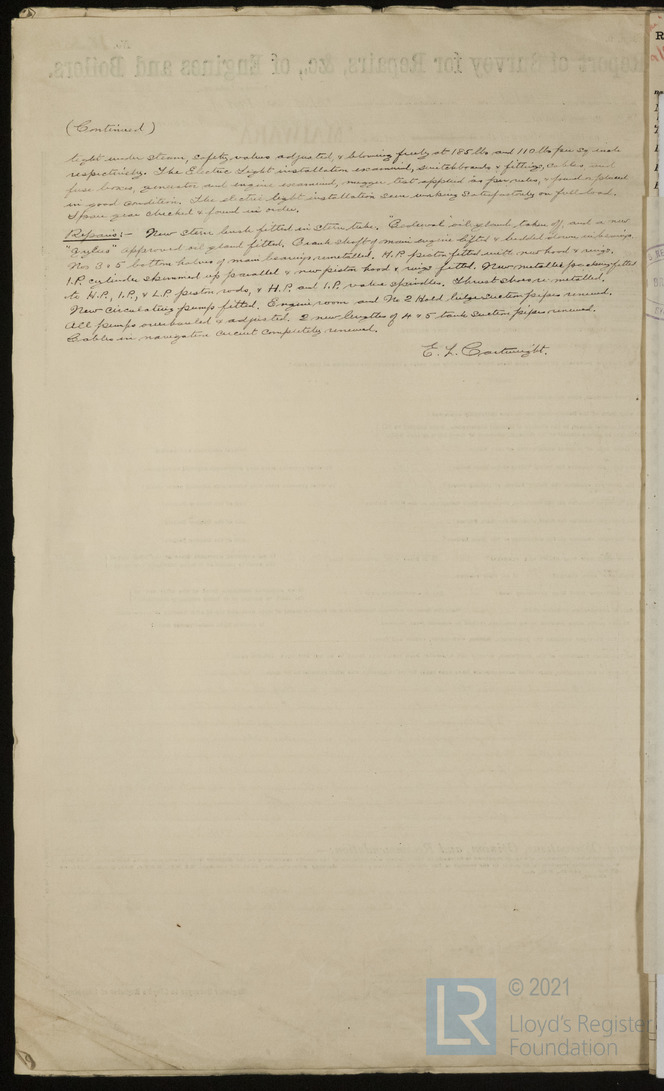 (Continued)
tight under steam, safety valves adjusted, & blowing freely at 185 lbs and 110 lbs per sq inch
respectively. The Electric Light installation examined, switchboards & fittings, cables and
fuse boxes, generator and engine examined, megger test applied as per rules, & found & placed
in good condition. The electric light installation seen working satisfactorily on full load.
Spare gear checked & found in order.
Repairs:- New stern bush fitted in stern tube. "Cedervall" oil gland taken off, and a new
approved oil gland fitted. Crank shaft of main engine lifted & bedded down in bearings.
Nos 3 & 5 bottom halves of main bearings remetalled. H.P. piston fitted with new hood & rings.
I.P. cylinder skimmed up parallel & new piston hood & rings fitted. New metallic packing fitted
to H.P., I.P., & L.P. piston rods, & H.P. and I.P. valve spindles. Thrust shoes remetalled.
New circulating pump fitted. Engine room and No 2 Hold bilge suction pipes renewed.
All pumps overhauled & adjusted. 2 new lengths of 4 & 5 tank suction pipes, renewed.
Cables in navigation circuit completely renewed.
E. L. Cartwright.
© 2021
LR
Lloyd's Register
Foundation